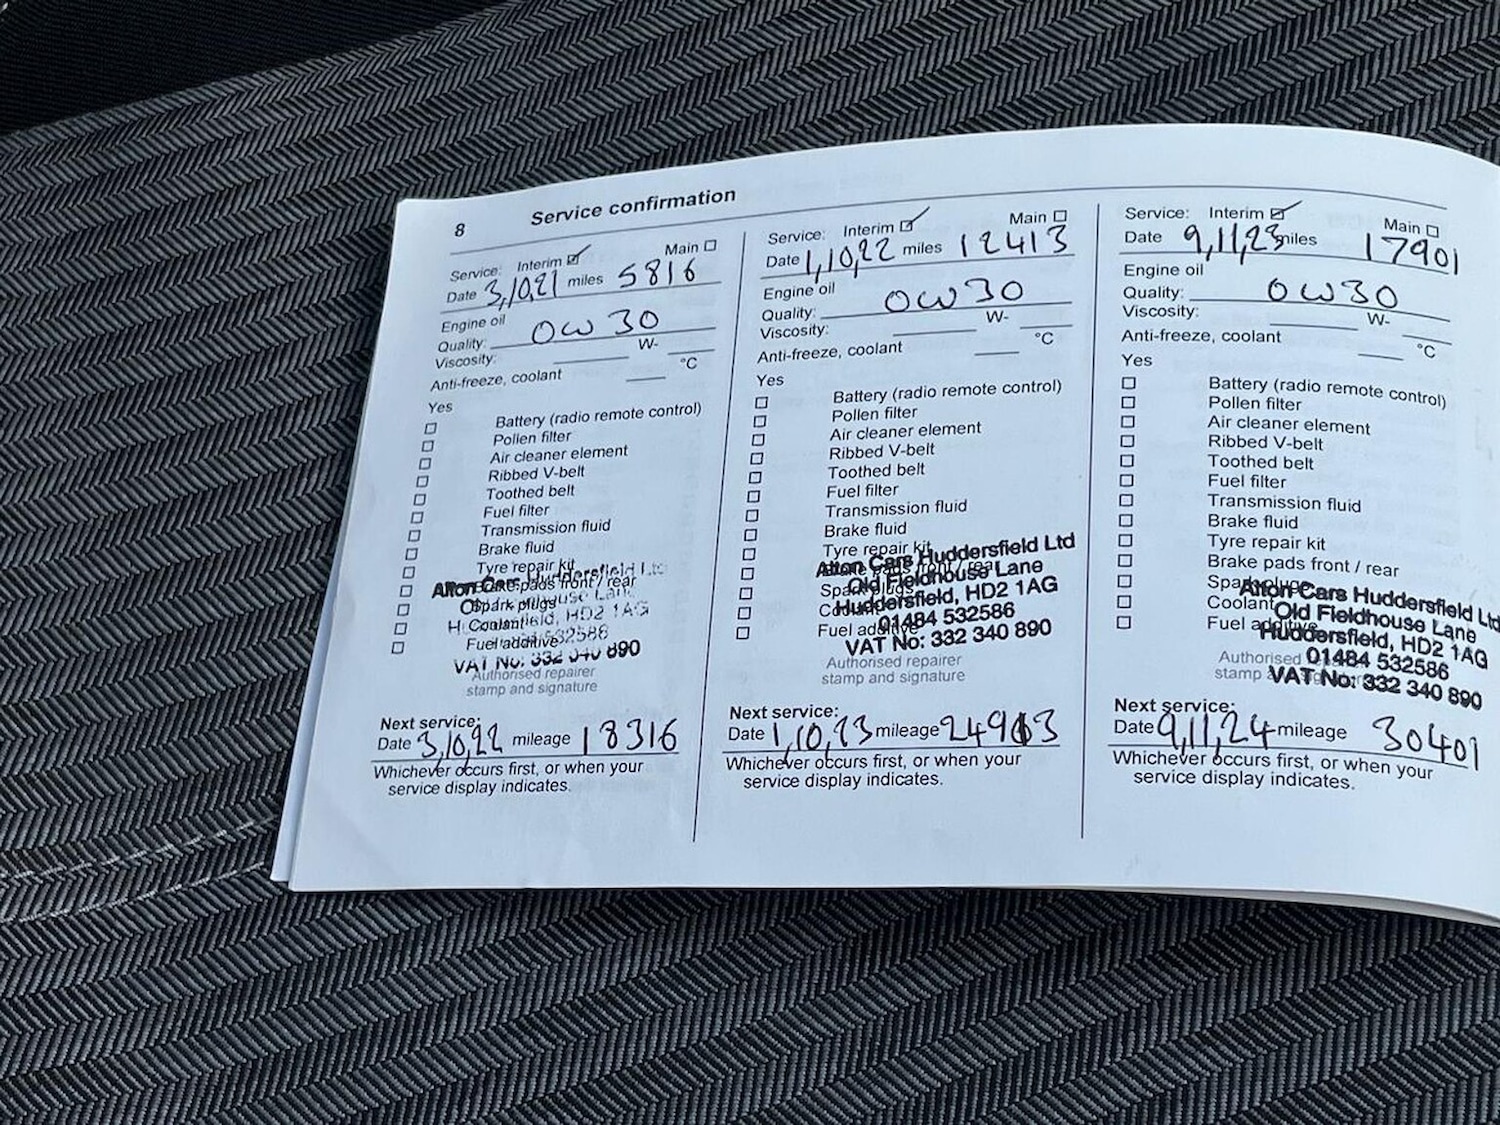 8 Service confirmation
Service: Interim Main
Date 3,10,21 miles 5816
Engine oil
Quality: 0W30
Viscosity: W-
Anti-freeze, coolant °C
Yes
Battery (radio remote control)
Pollen filter
Air cleaner element
Ribbed V-belt
Toothed belt
Fuel filter
Transmission fluid
Brake fluid
Tyre repair kit
Brake pads front / rear
Spark plugs
Coolant
Fuel additive
Alton Cars Huddersfield Ltd
HD2 1AG
VAT No: 332 340 890
Authorised repairer
stamp and signature
Next service:
Date 3,10,22 mileage 18316
Whichever occurs first, or when your
service display indicates.
Service: Interim Main
Date 1,10,22 miles 12413
Engine oil
Quality: 0W30
Viscosity: W-
Anti-freeze, coolant °C
Yes
Battery (radio remote control)
Pollen filter
Air cleaner element
Ribbed V-belt
Toothed belt
Fuel filter
Transmission fluid
Brake fluid
Tyre repair kit
Brake pads front / rear
Spark plugs
Coolant
Fuel additive
Alton Cars Huddersfield Ltd
Old Fieldhouse Lane
Huddersfield, HD2 1AG
01484 532586
VAT No: 332 340 890
Authorised repairer
stamp and signature
Next service:
Date 1,10,23 mileage 24913
Whichever occurs first, or when your
service display indicates.
Service: Interim Main
Date 9,11,23 miles 17901
Engine oil
Quality: 0W30
Viscosity: W-
Anti-freeze, coolant °C
Yes
Battery (radio remote control)
Pollen filter
Air cleaner element
Ribbed V-belt
Toothed belt
Fuel filter
Transmission fluid
Brake fluid
Tyre repair kit
Brake pads front / rear
Spark plugs
Coolant
Fuel additive
Alton Cars Huddersfield Ltd
Old Fieldhouse Lane
Huddersfield, HD2 1AG
01484 532586
VAT No: 332 340 890
Authorised
stamp
Next service:
Date 9,11,24 mileage 30401
Whichever occurs first, or when your
service display indicates.